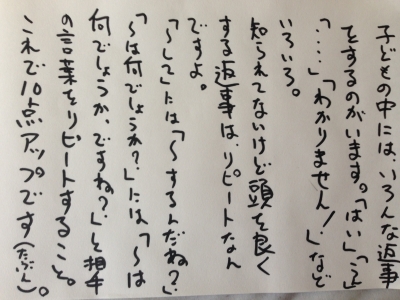 子どもの中には、いろんな返事
をするのがいます。「はい」「え」
「‥‥」「わかりません！」など
いろいろ。
知られてないけど頭を良く
する返事は、リピートなん
ですよ。
「〜して」には「〜するんだね？」
「〜は何でしょうか？」には「〜は
何でしょうか、ですね？」と相手
の言葉をリピートすること。
これで10点アップです（たぶん）。